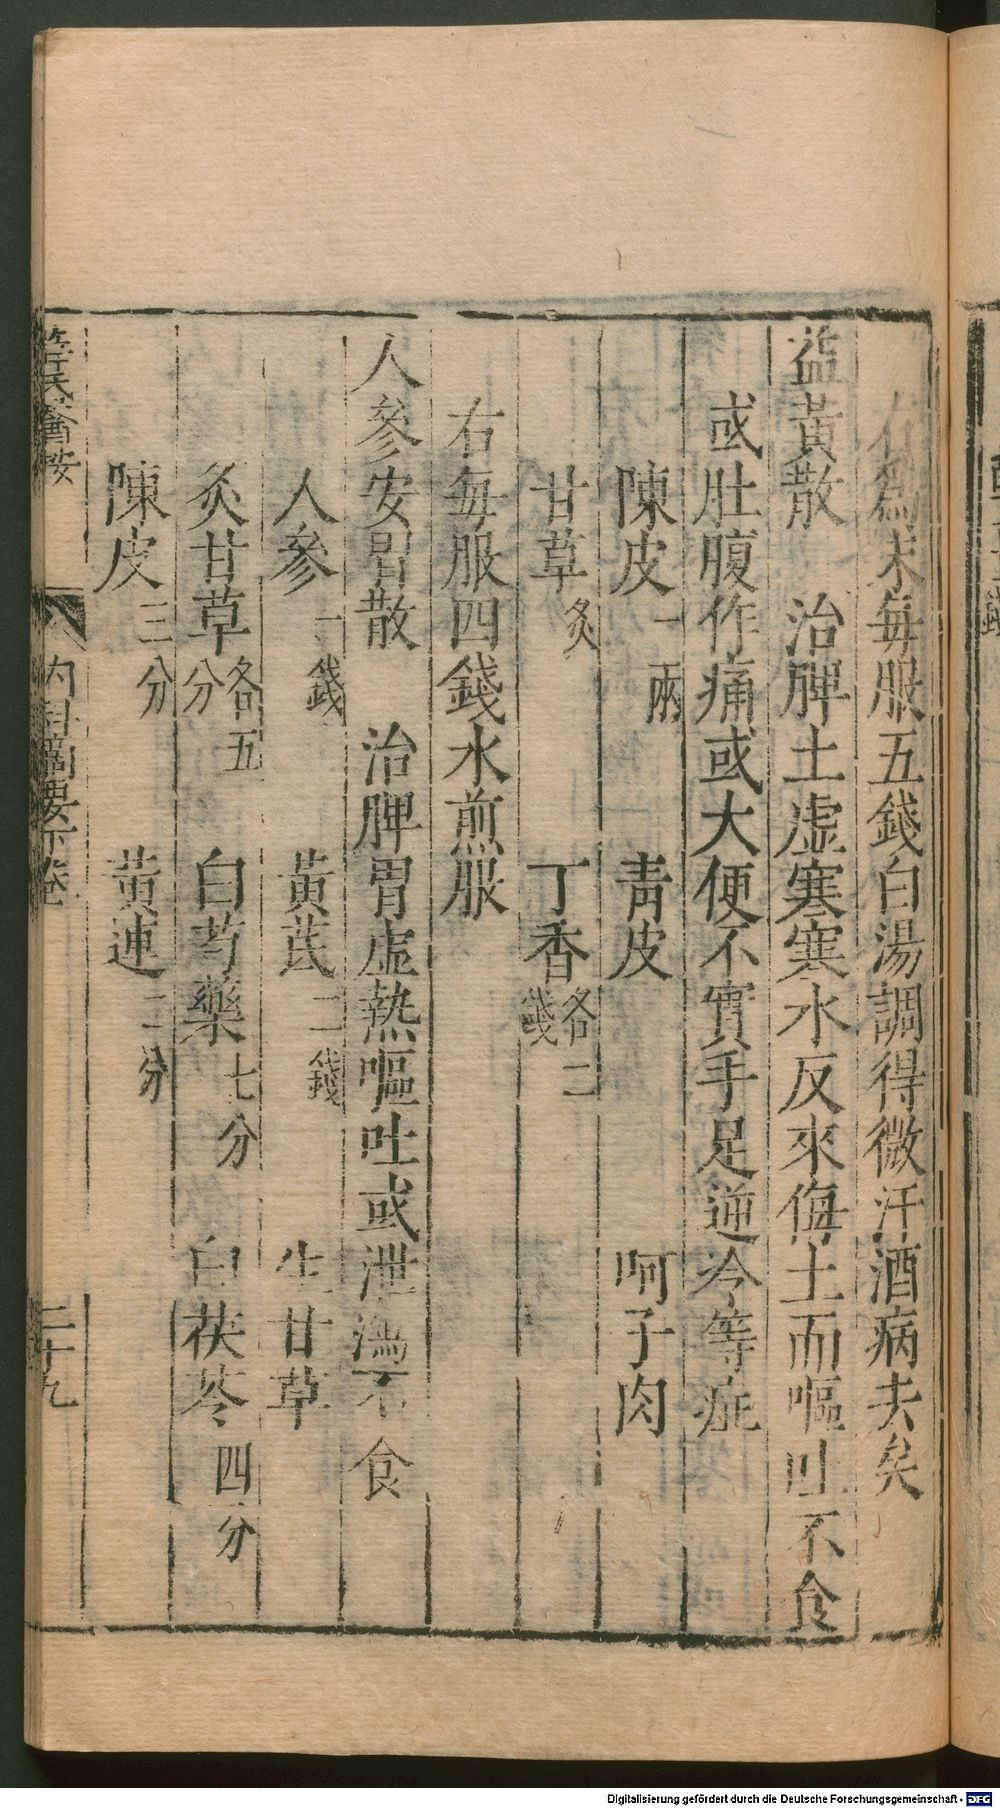 右爲末每服五錢白湯調得微汗酒病去矣
益黃散　治脾土虛寒寒水反來侮土而嘔吐不食
或肚腹作痛或大便不實手足逆冷等症
陳皮一兩　青皮　呵子肉
甘草炙　丁香各二錢
右每服四錢水煎服
人參安胃散　治脾胃虛熱嘔吐或泄瀉不食
人參一錢　黃芪二錢　生甘草
炙甘草各五分　白芍藥七分　白茯苓四分
陳皮三分　黃連二分
薛氏醫按　內科摘要下卷　二十九
Digitalisierung gefördert durch die Deutsche Forschungsgemeinschaft - DFG